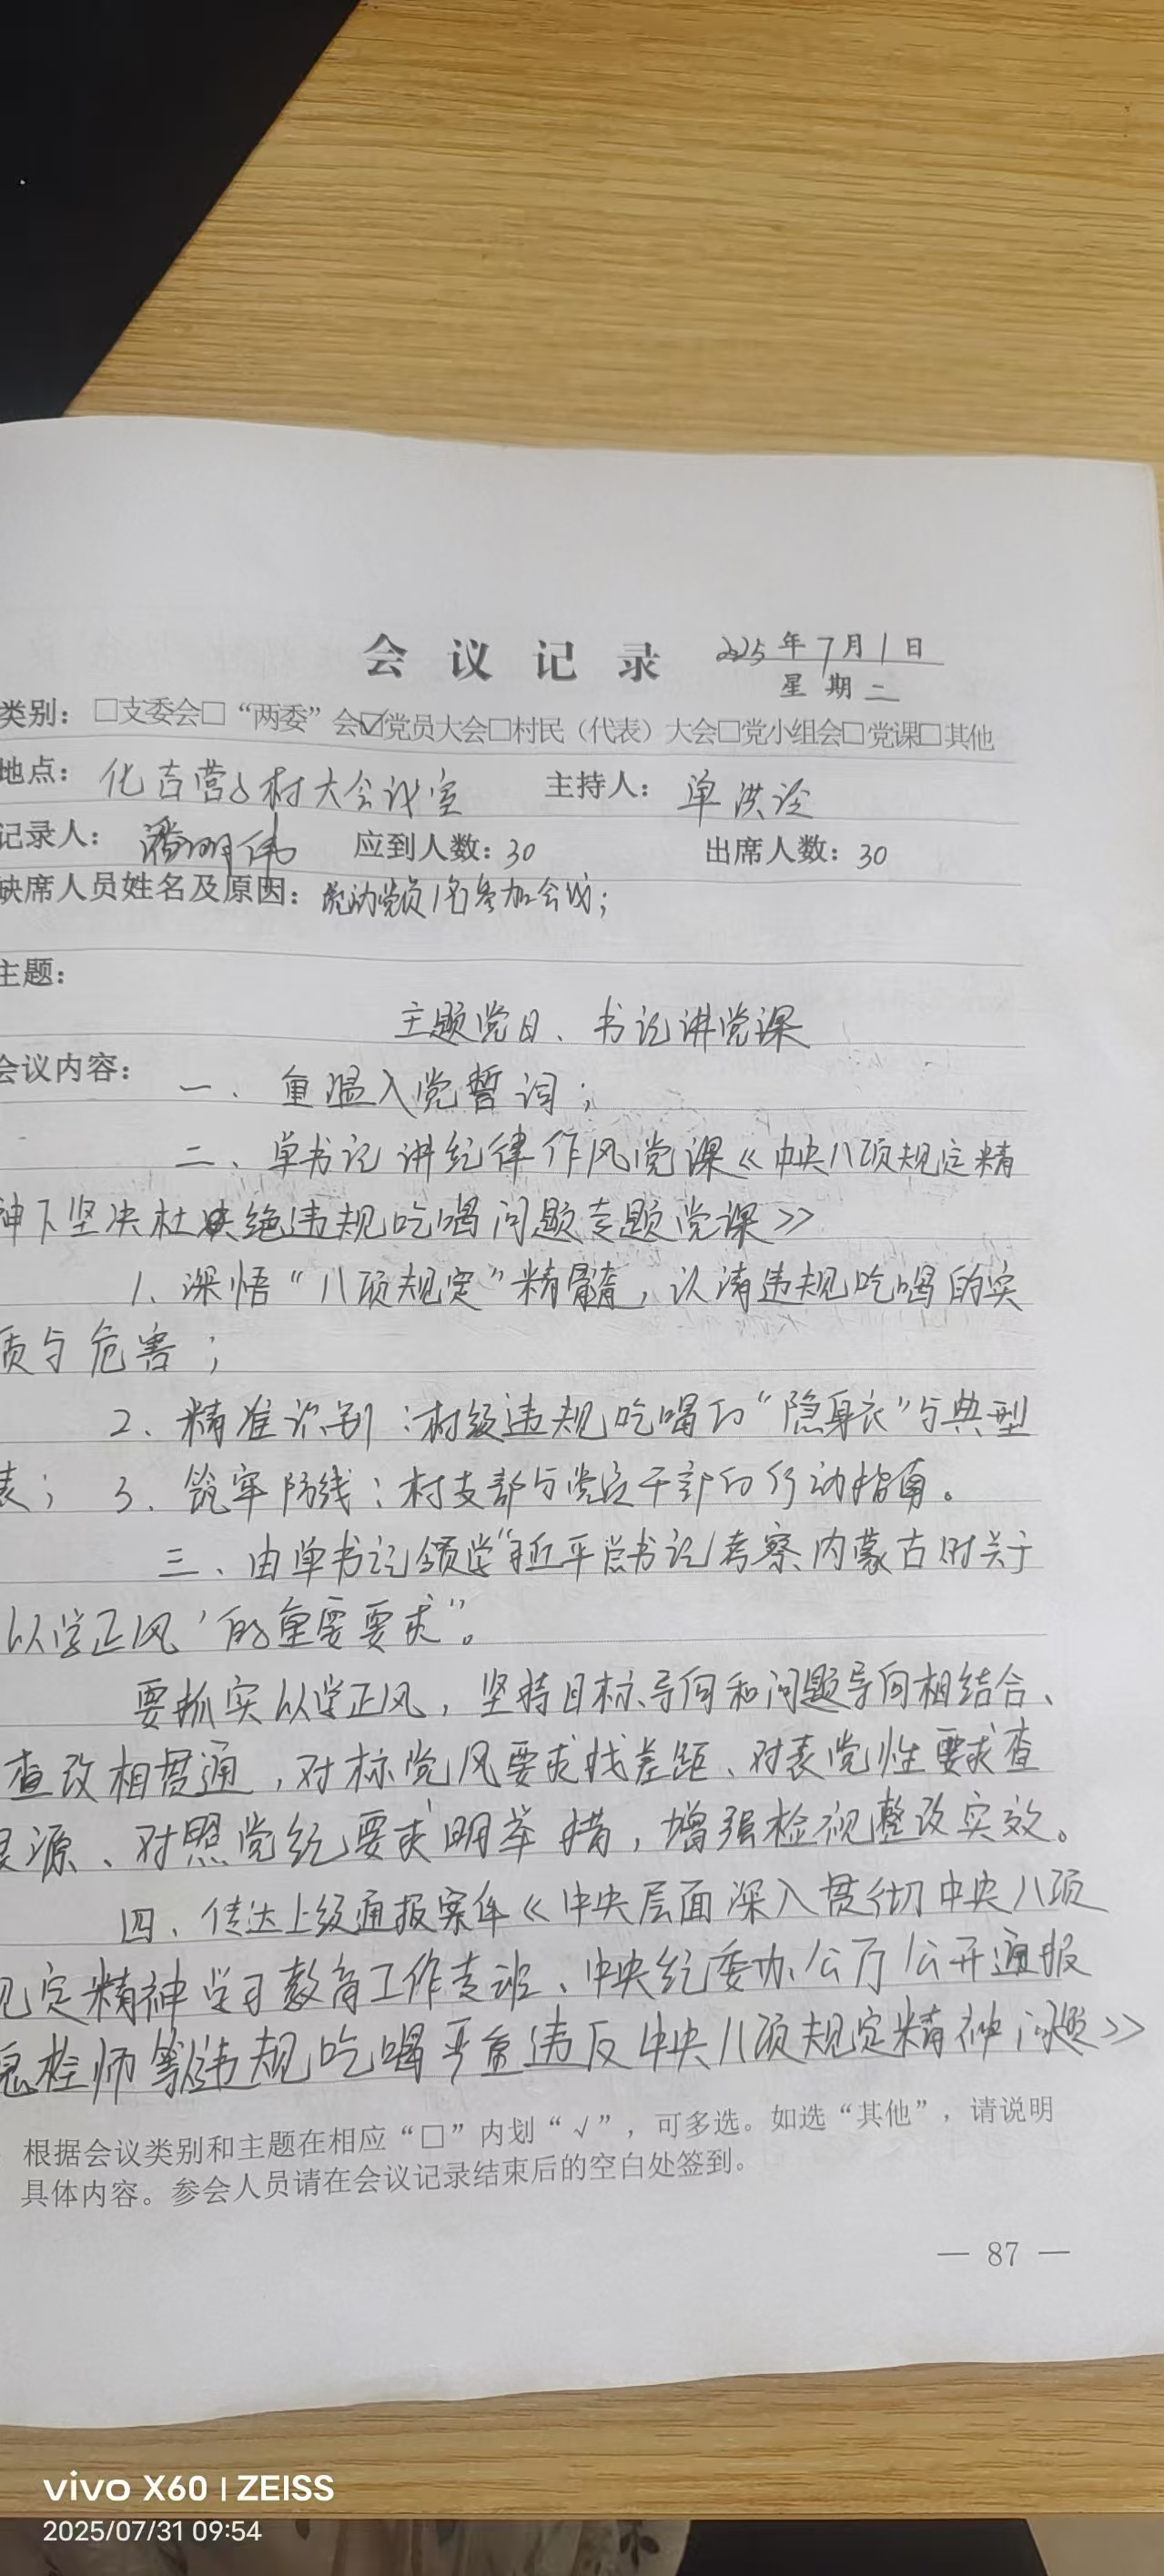 会 议 记 录 2025年7月1日
星 期 二
类别：□支委会□“两委”会☑党员大会□村民（代表）大会□党小组会□党课□其他
地点：化吉营子村大会议室 主持人：单洪
记录人：潘明伟 应到人数：30 出席人数：30
缺席人员姓名及原因：流动党员1名参加会议；
主题：
主题党日、书记讲党课
会议内容：一、重温入党誓词；
二、单书记讲纪律作风党课《中央八项规定精
神下坚决杜绝违规吃喝问题专题党课》
1、深悟“八项规定”精髓，认清违规吃喝的实
质与危害；
2、精准识别：村级违规吃喝的“隐身衣”与典型
表；3、筑牢防线：村支部与党员干部的行动指南。
三、由单书记领学“习近平总书记考察内蒙古时关于
以学正风’的重要要求”。
要抓实以学正风，坚持目标导向和问题导向相结合、
查改相贯通，对标党风要求找差距、对表党性要求查
根源、对照党纪要求明举措，增强检视整改实效。
四、传达上级通报案件《中央层面深入贯彻中央八项
规定精神学习教育工作专班、中央纪委办公厅公开通报
拴师等违规吃喝严重违反中央八项规定精神问题》
根据会议类别和主题在相应“□”内划“√”，可多选。如选“其他”，请说明
具体内容。参会人员请在会议记录结束后的空白处签到。
— 87 —
vivo X60 | ZEISS
2025/07/31 09:54